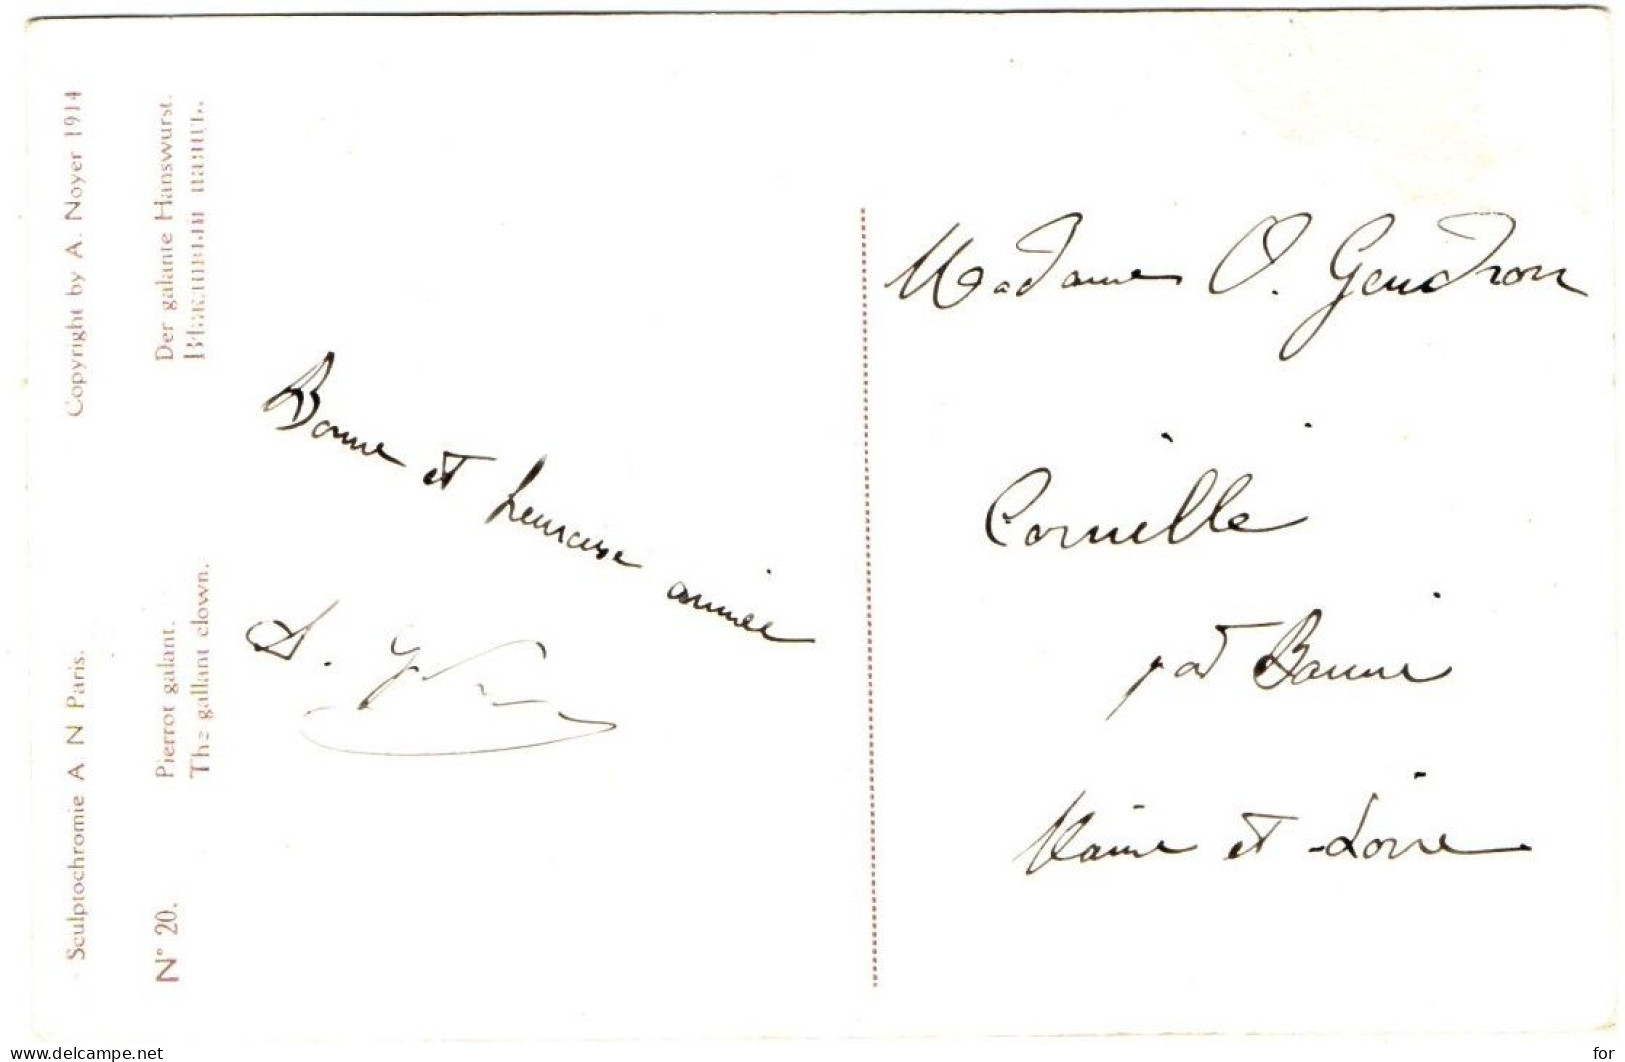 Sculptochromie A N Paris. Copyright by A. Noyer 1914
N° 20.
Pierrot galant. Der galante Hanswurst.
The gallant clown.
Bonne et heureuse année
Madame O. Gendron
Corneillé
par Bauné
Maine et Loire
www.delcampe.net
for